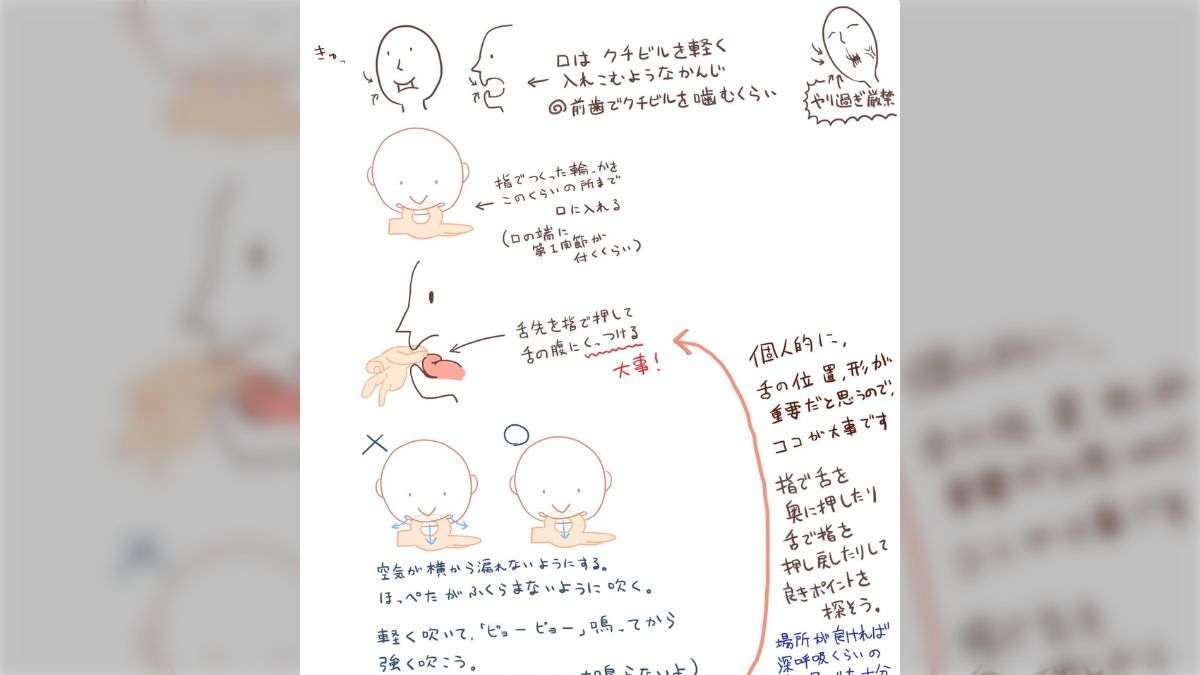 きゅっ
口は クチビルを軽く
入れこむようなかんじ
◎前歯でクチビルを噛むくらい
やり過ぎ厳禁
指でつくった輪っかを
このくらいの所まで
口に入れる
(口の端に
第1関節が
付くくらい)
舌先を指で押して
舌の腹にくっつける
大事!
個人的に、
舌の位置、形が
重要だと思うので、
ココが大事です
指で舌を
奥に押したり
舌で指を
押し戻したりして
良きポイントを
探そう。
場所が良ければ
深呼吸くらいの
×
○
空気が横から漏れないようにする。
ほっぺたがふくらまないように吹く。
軽く吹いて、「ピョーピョー」鳴ってから
強く吹こう。
鳴らないよ)